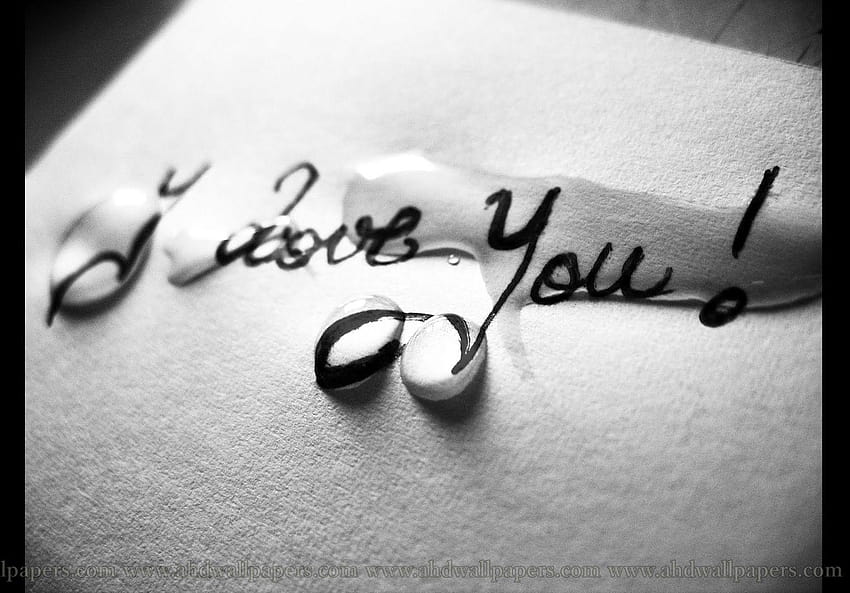 I Love You!
lpapers.com www.ahdwallpapers.com www.ahdwallpapers.com www.ahdwallpapers.com